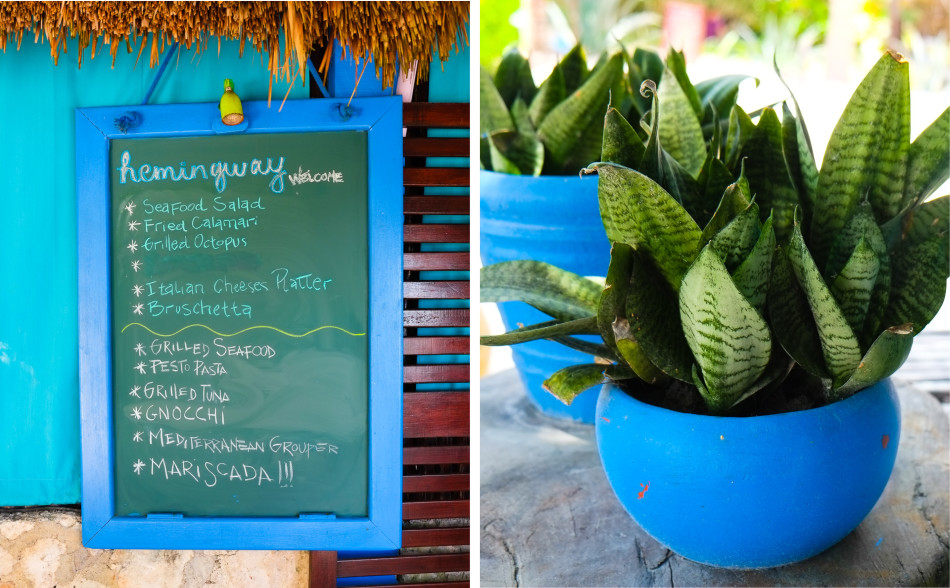 hemingway WELCOME
* Seafood Salad
* Fried Calamari
* Grilled Octopus
*
* Italian Cheeses Platter
* Bruschetta
* GRILLED SEAFOOD
* PESTO PASTA
* GRILLED TUNA
* GNOCCHI
* MEDITERRANEAN GROUPER
* MARISCADA!!!